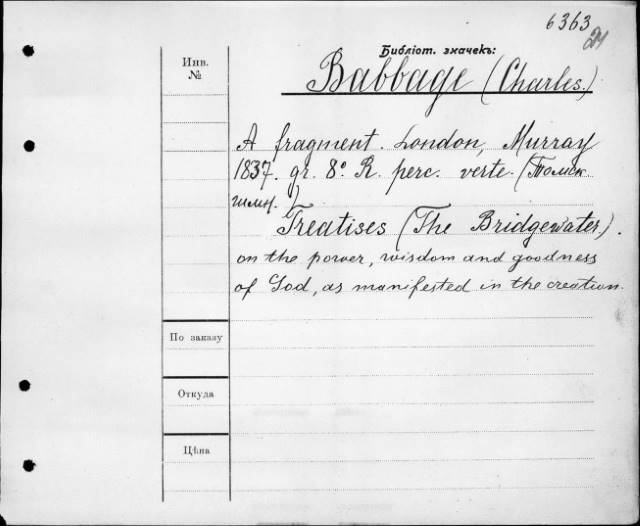 6363
24
Библіот. значекъ:
Инв.
№
Babbage (Charles.)
A fragment. London, Murray
1837. gr. 8º. R. perc. verte. (Томск.
Treatises (The Bridgewater.).
on the power, wisdom and goodness
of God, as manifested in the creation.
По заказу
Откуда
Цѣна